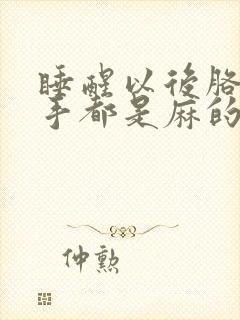 睡醒以後胳
手都是麻的
仲勲